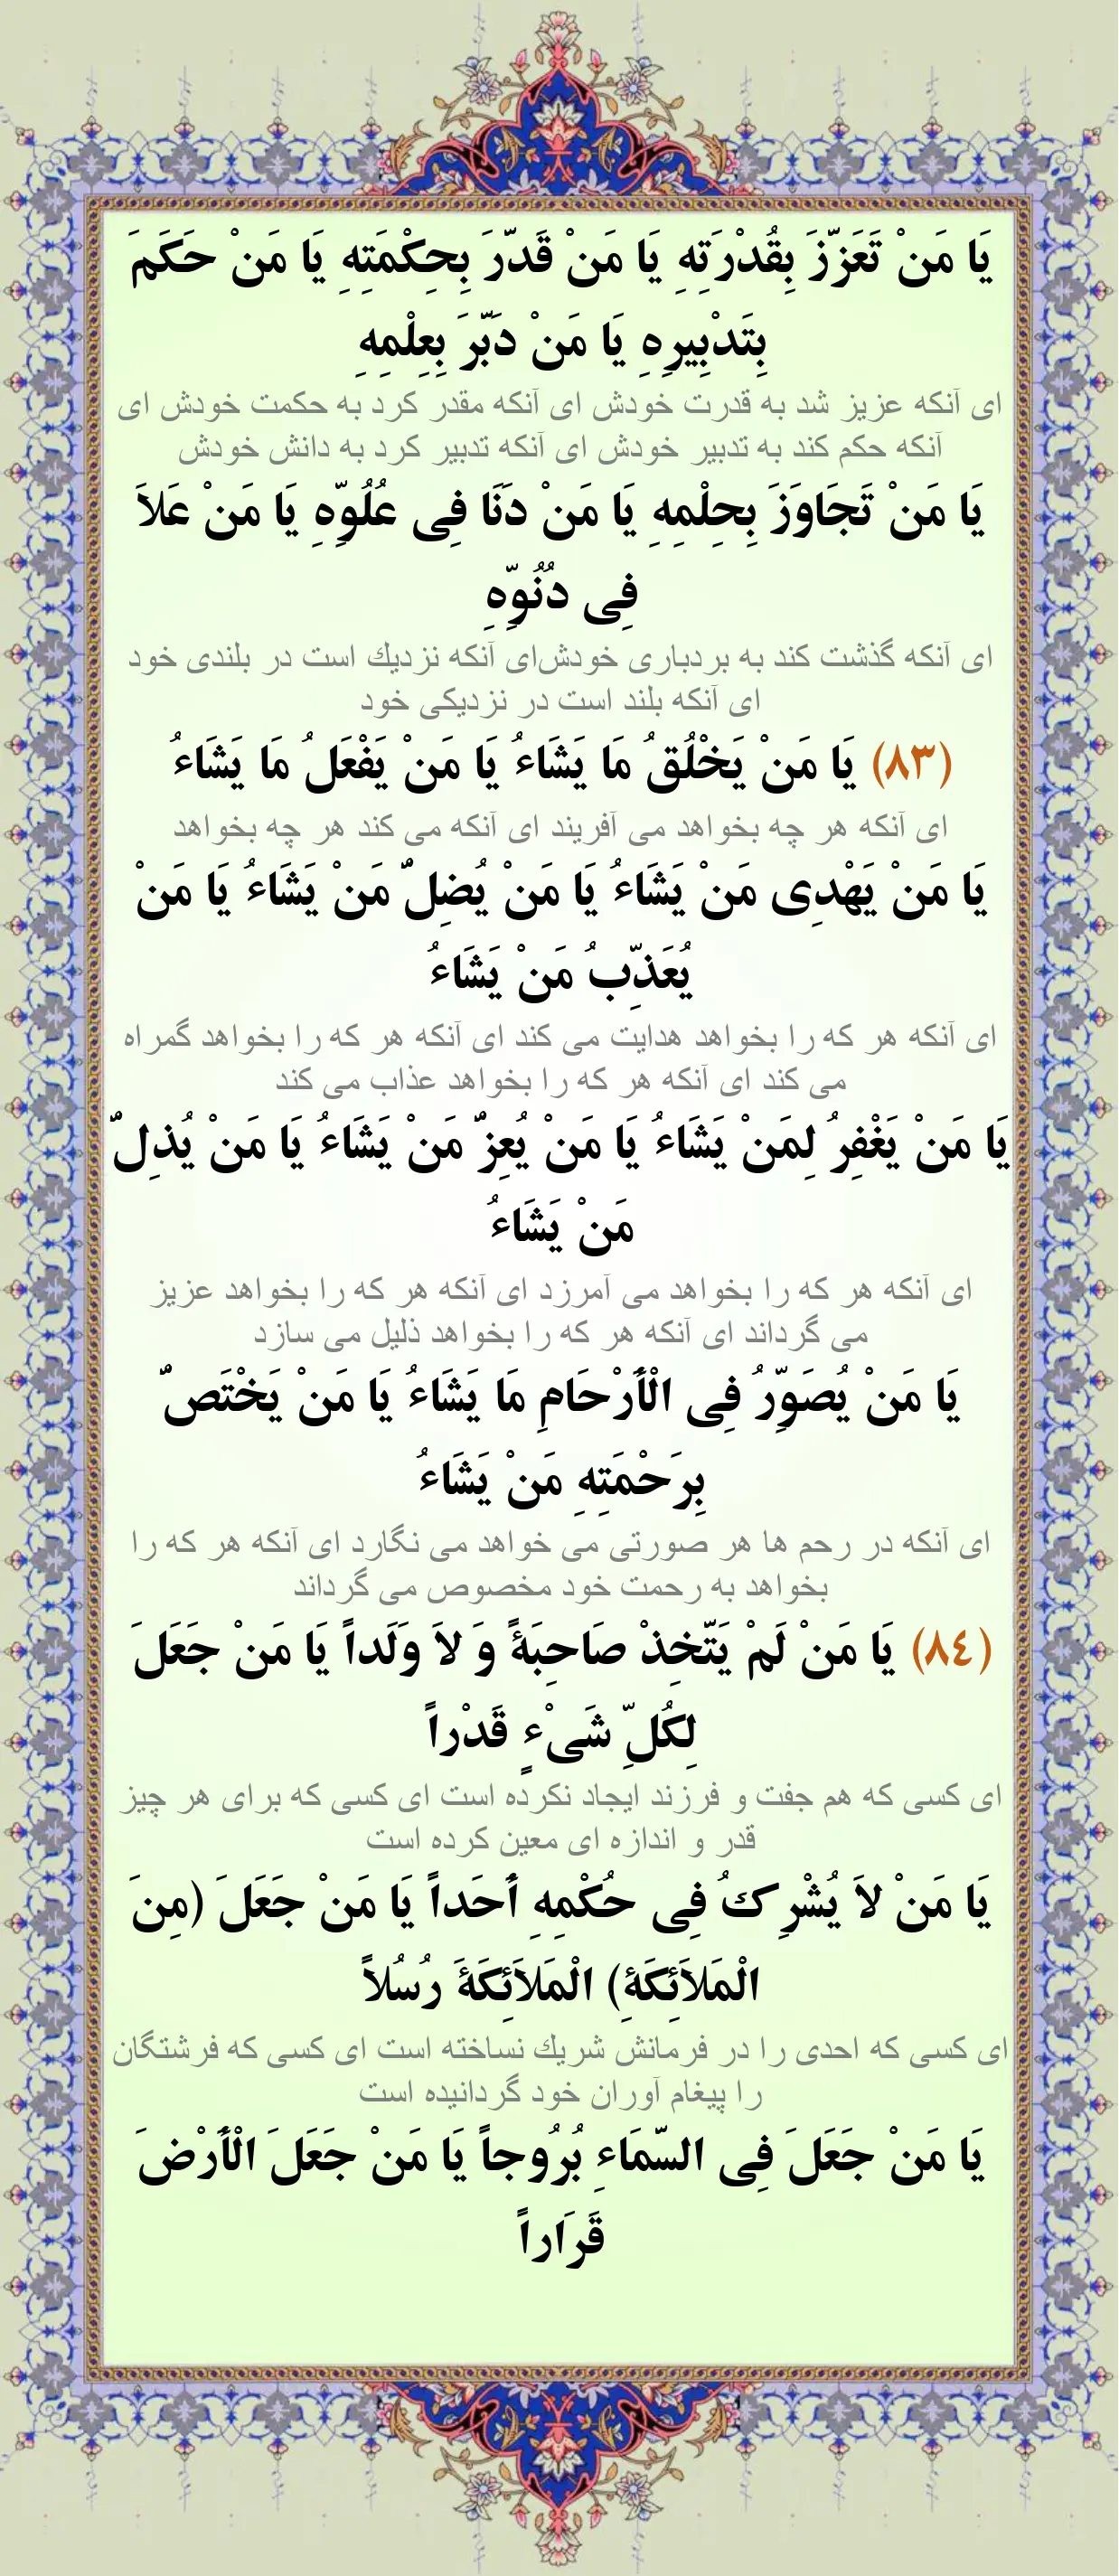 يَا مَنْ تَعَزَّزَ بِقُدْرَتِهِ يَا مَنْ قَدَّرَ بِحِكْمَتِهِ يَا مَنْ حَكَمَ
بِتَدْبِيرِهِ يَا مَنْ دَبَّرَ بِعِلْمِهِ
ای آنکه عزیز شد به قدرت خودش ای آنکه مقدر کرد به حکمت خودش ای
آنکه حکم کند به تدبیر خودش ای آنکه تدبیر کرد به دانش خودش
يَا مَنْ تَجَاوَزَ بِحِلْمِهِ يَا مَنْ دَنَا فِی عُلُوِّهِ يَا مَنْ عَلاَ
فِی دُنُوِّهِ
ای آنکه گذشت کند به بردباری خودش‌ای آنکه نزدیك است در بلندی خود
ای آنکه بلند است در نزدیکی خود
(٨٣) يَا مَنْ يَخْلُقُ مَا يَشَاءُ يَا مَنْ يَفْعَلُ مَا يَشَاءُ
ای آنکه هر چه بخواهد می آفریند ای آنکه می کند هر چه بخواهد
يَا مَنْ يَهْدِی مَنْ يَشَاءُ يَا مَنْ يُضِلُّ مَنْ يَشَاءُ يَا مَنْ
يُعَذِّبُ مَنْ يَشَاءُ
ای آنکه هر که را بخواهد هدایت می کند ای آنکه هر که را بخواهد گمراه
می کند ای آنکه هر که را بخواهد عذاب می کند
يَا مَنْ يَغْفِرُ لِمَنْ يَشَاءُ يَا مَنْ يُعِزُّ مَنْ يَشَاءُ يَا مَنْ يُذِلُّ
مَنْ يَشَاءُ
ای آنکه هر که را بخواهد می آمرزد ای آنکه هر که را بخواهد عزیز
می گرداند ای آنکه هر که را بخواهد ذلیل می سازد
يَا مَنْ يُصَوِّرُ فِی الْأَرْحَامِ مَا يَشَاءُ يَا مَنْ يَخْتَصُّ
بِرَحْمَتِهِ مَنْ يَشَاءُ
ای آنکه در رحم ها هر صورتی می خواهد می نگارد ای آنکه هر که را
بخواهد به رحمت خود مخصوص می گرداند
(٨٤) يَا مَنْ لَمْ يَتَّخِذْ صَاحِبَةً وَ لاَ وَلَداً يَا مَنْ جَعَلَ
لِكُلِّ شَیْءٍ قَدْراً
ای کسی که هم جفت و فرزند ایجاد نکرده است ای کسی که برای هر چیز
قدر و اندازه ای معین کرده است
يَا مَنْ لاَ يُشْرِكُ فِی حُكْمِهِ أَحَداً يَا مَنْ جَعَلَ (مِنَ
الْمَلاَئِكَةِ) الْمَلاَئِكَةَ رُسُلاً
ای کسی که احدی را در فرمانش شریك نساخته است ای کسی که فرشتگان
را پیغام آوران خود گردانیده است
يَا مَنْ جَعَلَ فِی السَّمَاءِ بُرُوجاً يَا مَنْ جَعَلَ الْأَرْضَ
قَرَاراً